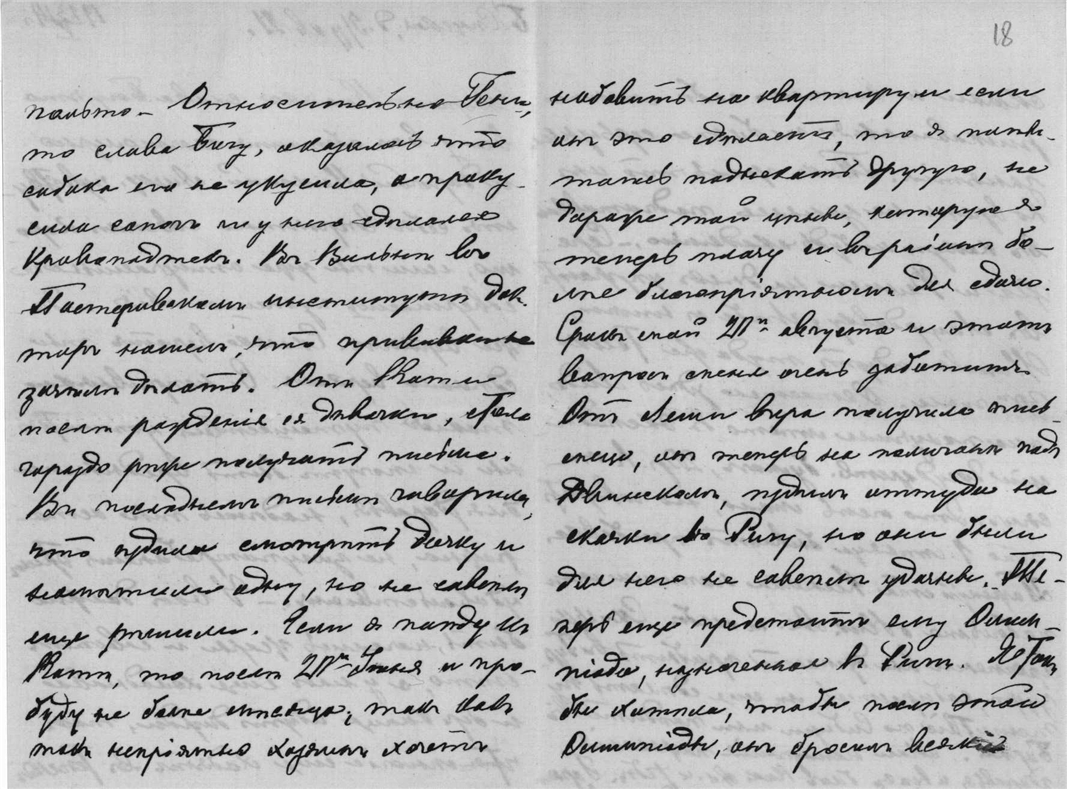 18
пальто. Относительно Гени,
то слава Богу, оказалось что
собака его не укусила, а проку-
сила сапогъ и у него сдѣлался
кровоподтекъ. Въ Вильнѣ въ
Пастеровскомъ институтѣ док-
торъ нашелъ, что прививки не
зачѣмъ дѣлать. Отъ Кати
послѣ рожденія ея дѣвочки, стала
гораздо рѣже получать письма.
Въ послѣднемъ письмѣ говорила,
что ѣздила смотрѣть дачку и
наметили одну, но не совсѣмъ
еще рѣшили. Если я поѣду къ
Катѣ, то послѣ 20го Іюня и про-
буду не болѣе мѣсяца, такъ какъ
такъ непріятно хозяинъ хочетъ
набавить на квартиру и если
онъ это сдѣлаетъ, то я попы-
таюсь подыскать другую, не
дороже той цѣны, которую я
теперь плачу и въ районѣ бо-
лѣе благопріятномъ для сдачи.
Срокъ мой 20го августа и этотъ
вопросъ меня очень заботитъ.
Отъ Леши вчера получила пись-
мецо, онъ теперь на полигонѣ подъ
Двинскомъ, ѣздилъ оттуда на
скачки въ Ригу, но они были
для него не совсѣмъ удачны. Те-
перь еще предстоитъ ему Олим-
піада, назначенная въ Ригѣ. Я
бы хотѣла, чтобы послѣ этой
Олимпіады, онъ бросилъ всякія